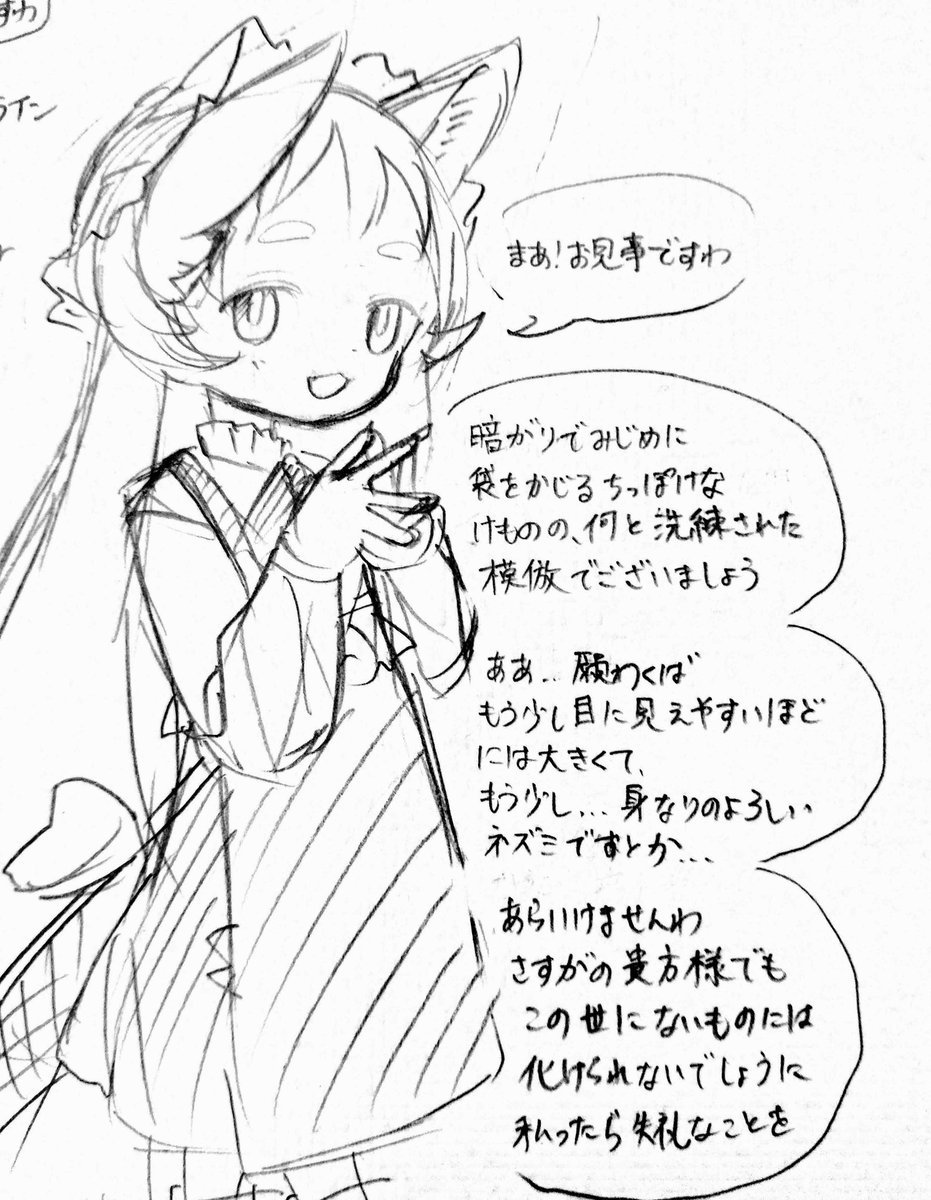 すわ
ライン
まあ!お見事ですわ
暗がりでみじめに
袋をかじるちっぽけな
けものの、何と洗練された
模倣でございましょう
ああ... 願わくば
もう少し目に見えやすいほど
には大きくて、
もう少し... 身なりのよろしい
ネズミですとか...
あらいけませんわ
さすがの貴方様でも
この世にないものには
化けられないでしょうに
私ったら失礼なことを